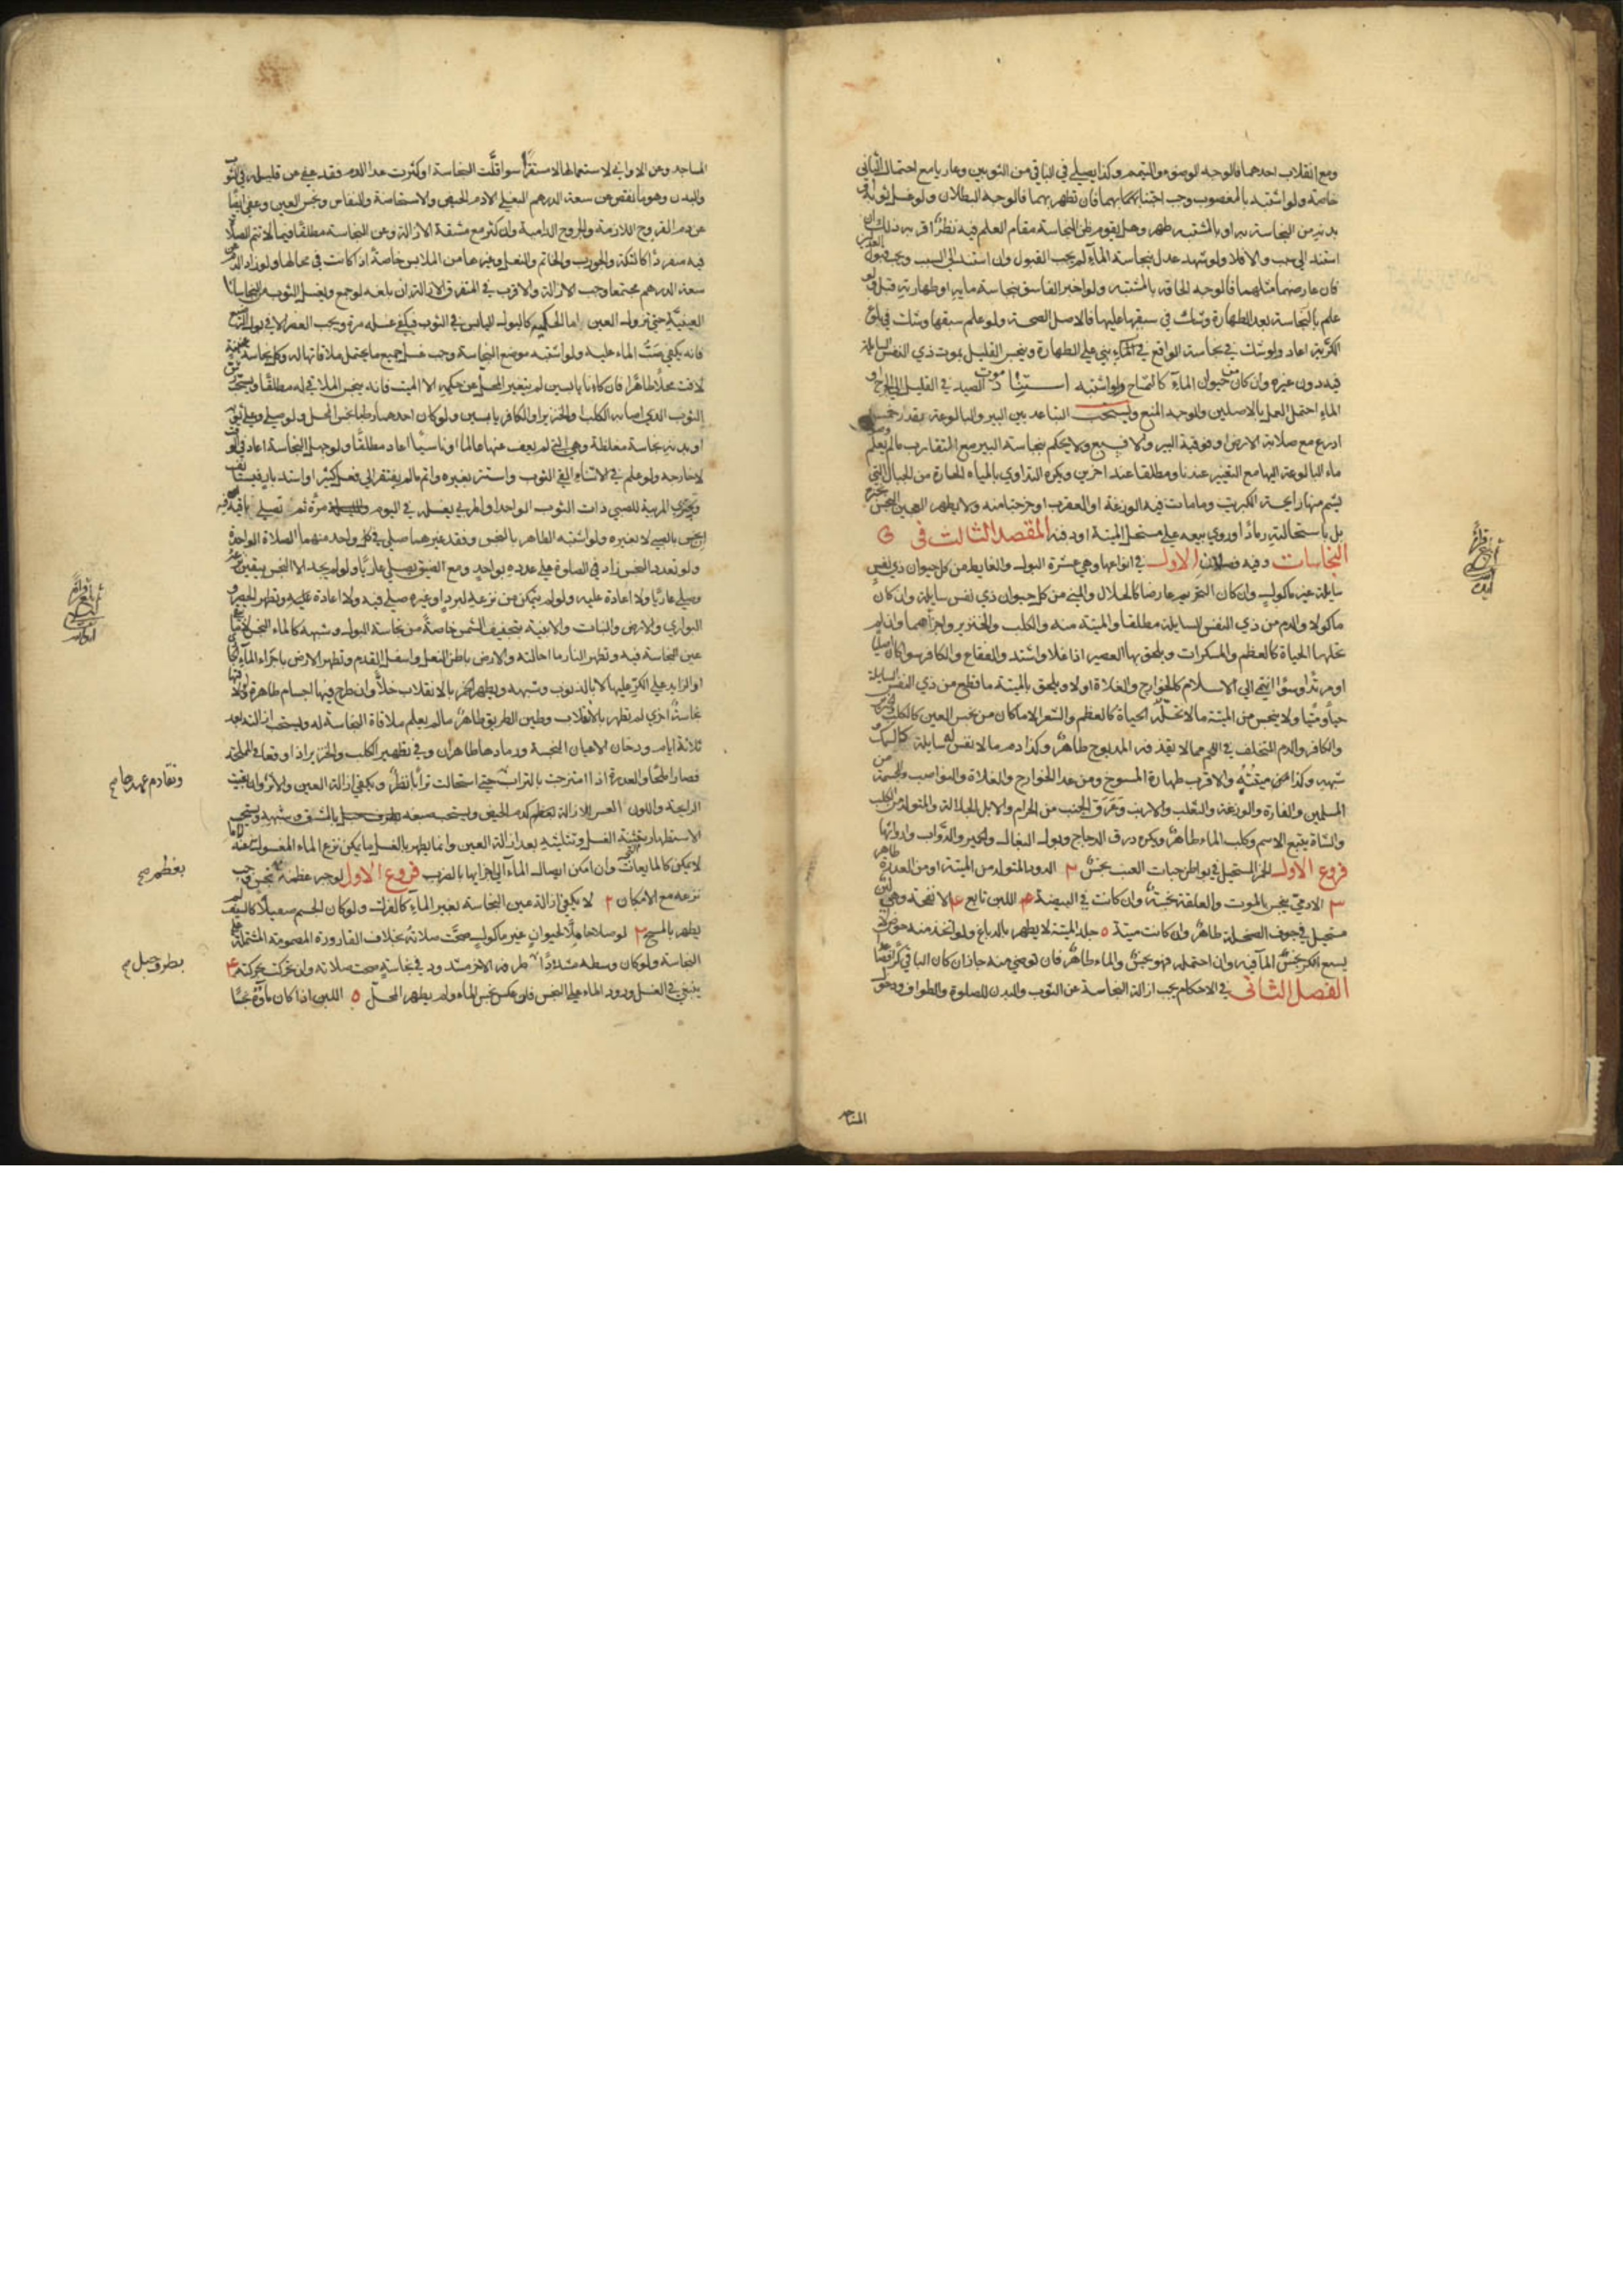 ومع انقلاب احدهما فالوجه الوضوء والتيمم وكذا يصلي في الباقي من الثوبين وعاريا مع احتمال الثاني
خاصة ولو اشتبه بالمغصوب وجب اجتنابهما فان تطهر بهما فالوجه البطلان ولو غسل ثوبه او
بدنه من النجاسة به او بالمشتبه طهر وهل يقوم ظن النجاسة مقام العلم فيه نظر اقربه ذلك ان
استند الى سبب والا فلا ولو شهد عدل بنجاسة الماء لم يجب القبول وان استند الى السبب ويجب قبول العدلين
فان عارضهما مثلهما فالوجه الحاقه بالمشتبه ولو اخبر الفاسق بنجاسة مائه او طهارته قبل ولو
علم بالنجاسة بعد الطهارة وشك في سبقها عليها فالاصل الصحة ولو علم سبقها وشك في بلوغ
الكرية اعاد ولو شك في نجاسة الواقع في الماء بني على الطهارة وينجس القليل بموت ذي النفس السائلة
فيه دون غيره وان كان من حيوان الماء كالتمساح ولو اشتبه استناد موت الصيد في القليل الى الجرح او
الماء احتمل العمل بالاصلين والوجه المنع ويستحب التباعد بين البير والبالوعة بقدر خمس
اذرع مع صلابة الارض او فوقية البير والا فسبع ولا يحكم بنجاسة البير مع التقارب ما لم يعلم وصول
ماء البالوعة اليها مع التغير عندنا ومطلقا عند اخرين ويكره التداوي بالمياه الحارة من الجبال التي
يشم منها رايحة الكبريت وما مات فيه الوزغة او العقرب او خرجتا منه ولا يطهر العجين النجس بخبزه
بل باستحالته رمادا وروي بيعه على مستحل الميتة او دفنه المقصد الثالث في
النجاسات وفيه فصلان الاول في انواعها وهي عشرة البول والغايط من كل حيوان ذي نفس
سايلة غير ماكول وان كان التحريم عارضا كالجلال والمني من كل حيوان ذي نفس سايلة وان كان
ماكولا والدم من ذي النفس السايلة مطلقا والميتة منه والكلب والخنزير واجزاهما وان لم
تحلها الحياة كالعظم والمسكرات ويلحق بها العصير اذا غلا واشتد والفقاع والكافر سوا كان اصليا
او مرتدا وسوا انتمى الى الاسلام كالخوارج والغلاة او لا ويلحق بالميتة ما قطع من ذي النفس السايلة
حيا وميتا ولا ينجس من الميتة ما لا تحله الحياة كالعظم والشعر الا ما كان من نجس العين كالكلب والخنزير
والكافر والدم المتخلف في اللحم مما لا يقذفه المذبوح طاهر وكذا دم ما لا نفس له سايلة كالسمك و
شبهه وكذا ميتته والاقرب طهارة المسوخ ومن عدا الخوارج والغلاة والنواصب والمجسمة من
المسلمين والفارة والوزغة والثعلب والارنب وعرق الجنب من الحرام والابل الجلالة والمتولد من الكلب
والشاة يتبع الاسم وكلب الماء طاهر ويكره ذرق الدجاج وبول البغال والحمير والدواب وارواثها
فروع الاول الخمر المستحيل في بواطن حبات العنب نجس ٢ الدود المتولد من الميتة او من العذرة طاهر
٣ الادمي ينجس بالموت والعلقة نجسة وان كانت في البيضة ٣ اللبن تابع ٤ الانفحة وهي لبن
مستحيل في جوف السخلة طاهر وان كانت ميتة ٥ جلد الميتة لا يطهر بالدباغ ولو اتخذ منه حوض لا
يسع الكر نجس الماء فيه وان احتمله فهو نجس والماء طاهر فان توضى منه جاز ان كان الباقي كرا فصاعدا
الفصل الثاني في الاحكام يجب ازالة النجاسة عن الثوب والبدن للصلوة والطواف ودخول
المساجد
المساجد وعن الاواني لاستعمالها لا مستقرا سوا قلت النجاسة او كثرت عدا الدم فقد عفي عن قليله في الثوب
والبدن وهو ما نقص عن سعة الدرهم البغلي الا دم الحيض والاستحاضة والنفاس ونجس العين وعفي ايضا
عن دم القروح اللازمة والجروح الدامية وان كثر مع مشقة الازالة وعن النجاسة مطلقا فيما لا تتم الصلاة
فيه منفردا كالتكة والجورب والخاتم والنعل وغيرها من الملابس خاصة اذا كانت في محالها ولو زاد الدم عن
سعة الدرهم مجتمعا وجب الازالة والاقرب في المتفرق الازالة ان بلغه لو جمع ويغسل الثوب من النجاسات
العينية حتى تزول العين اما الحكمية كالبول اليابس في الثوب فيكفي غسله مرة ويجب العصر الا في بول الرضيع
فانه يكفي صب الماء عليه ولو اشتبه موضع النجاسة وجب غسل جميع ما يحتمل ملاقاتها له وكل نجاسة عينية
لاقت محلا طاهرا فان كانا يابسين لم يتغير المحل عن حكمه الا الميت فانه ينجس الملاقي له مطلقا ويستحب رش
الثوب الذي اصابه الكلب والخنزير او الكافر يابسين ولو كان احدهما رطبا نجس المحل ولو صلى وعلى ثوبه
او بدنه نجاسة مغلظة وهي التي لم يعف عنها عالما او ناسيا اعاد مطلقا ولو جهل النجاسة اعاد في الوقت
لا خارجه ولو علم في الاثناء القى الثوب واستتر بغيره واتم ما لم يفتقر الى فعل كثير او استدبار فيستانف
وتجتزي المربية للصبي ذات الثوب الواحد او المربي بغسله في اليوم والليلة مرة ثم تصلي باقيه فيه
نجس بالصبي لا بغيره ولو اشتبه الطاهر بالنجس وفقد غيرهما صلى في كل واحد منهما الصلاة الواحدة
ولو تعدد النجس زاد في الصلوة على عدده بواحد ومع الضيق يصلي عاريا ولو لم يجد الا النجس بيقين نزعه
وصلى عاريا ولا اعادة عليه ولو لم يتمكن من نزعه لبرد او غيره صلى فيه ولا اعادة عليه وتطهر الحصر و
البواري والارض والنبات والابنية بتجفيف الشمس خاصة من نجاسة البول وشبهه كالماء النجس لا ما يبقى
عين النجاسة فيه وتطهر النار ما احالته والارض باطن النعل واسفل القدم وتطهر الارض باجراء الماء الجاري
او الزايد على الكر عليها لا بالذنوب وشبهه ويطهر الخمر بالانقلاب خلا وان طرح فيها اجسام طاهرة ولو لاقتها
نجاسة اخرى لم تطهر بالانقلاب وطين الطريق طاهر ما لم يعلم ملاقاة النجاسة له ويستحب ازالته بعد
ثلاثة ايام ودخان الاعيان النجسة ورمادها طاهران وفي تطهير الكلب والخنزير اذا وقعا في المملحة
فصارا ملحا والعذرة اذا امتزجت بالتراب حتى استحالت ترابا نظر ويكفي ازالة العين والاثر وان بقيت
الرايحة واللون العسر الازالة كدم الحيض ويستحب صبغه بالمشق وشبهه ويستحب
الاستظهار بتثنية الغسل وتثليثه بعد ازالة العين وانما يطهر بالغسل ما يمكن نزع الماء المغسول به عنه لا ما
لا يمكن كالمايعات وان امكن ايصال الماء الى اجزايها بالضرب فروع الاول لو جبر عظمه بعظم نجس وجب
نزعه مع الامكان ٢ لا يكفي ازالة عين النجاسة بغير الماء كالفرك ولو كان الجسم صقيلا كالسيف لم
يطهر بالمسح ٣ لو صلا حاملا لحيوان غير ماكول صحت صلاته بخلاف القارورة المضمومة المشتملة على
النجاسة ولو كان وسطه مشدودا طرفه الاخر مشدود في نجاسة صحت صلاته وان تحركت بحركته ٤
ينبغي في الغسل ورود الماء على النجس فان عكس نجس الماء ولم يطهر المحل ٥ اللبن اذا كان ماؤه نجسا
وتقادم عهدها صح
بعظم صح
بطرف حبل صح